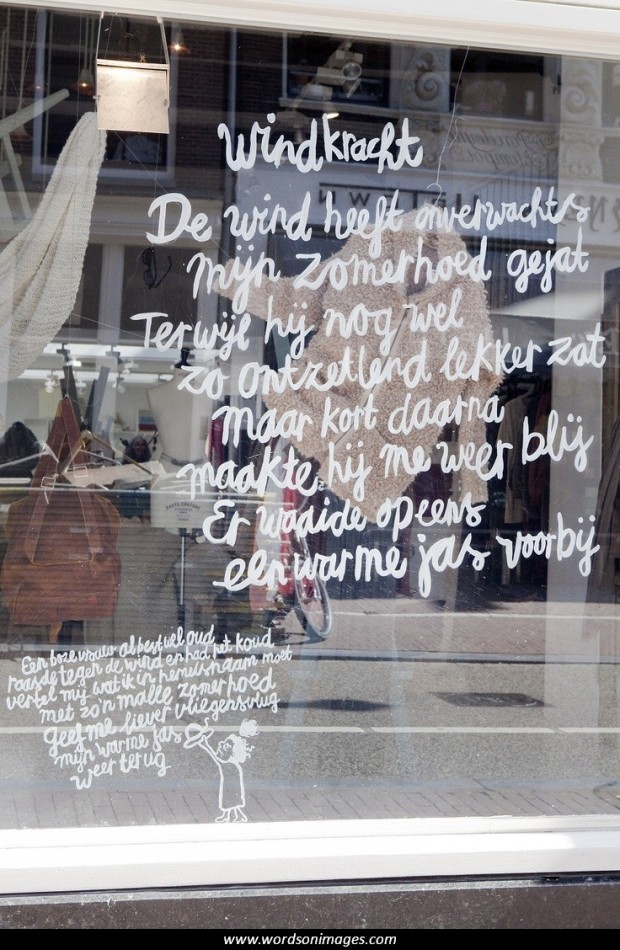 Windkracht
De wind heeft onverwachts
mijn zomerhoed gejat
Terwijl hij nog wel
zo ontzettend lekker zat
maar kort daarna
maakte hij me weer blij
Er waaide opeens
een warme jas voorbij
Een boze vrouw al best wel oud
raasde tegen de wind en had het koud
vertel mij wat ik in hemelsnaam moet
met zo'n malle zomerhoed
geef me liever vliegensvlug
mijn warme jas
weer terug
www.wordsonimages.com